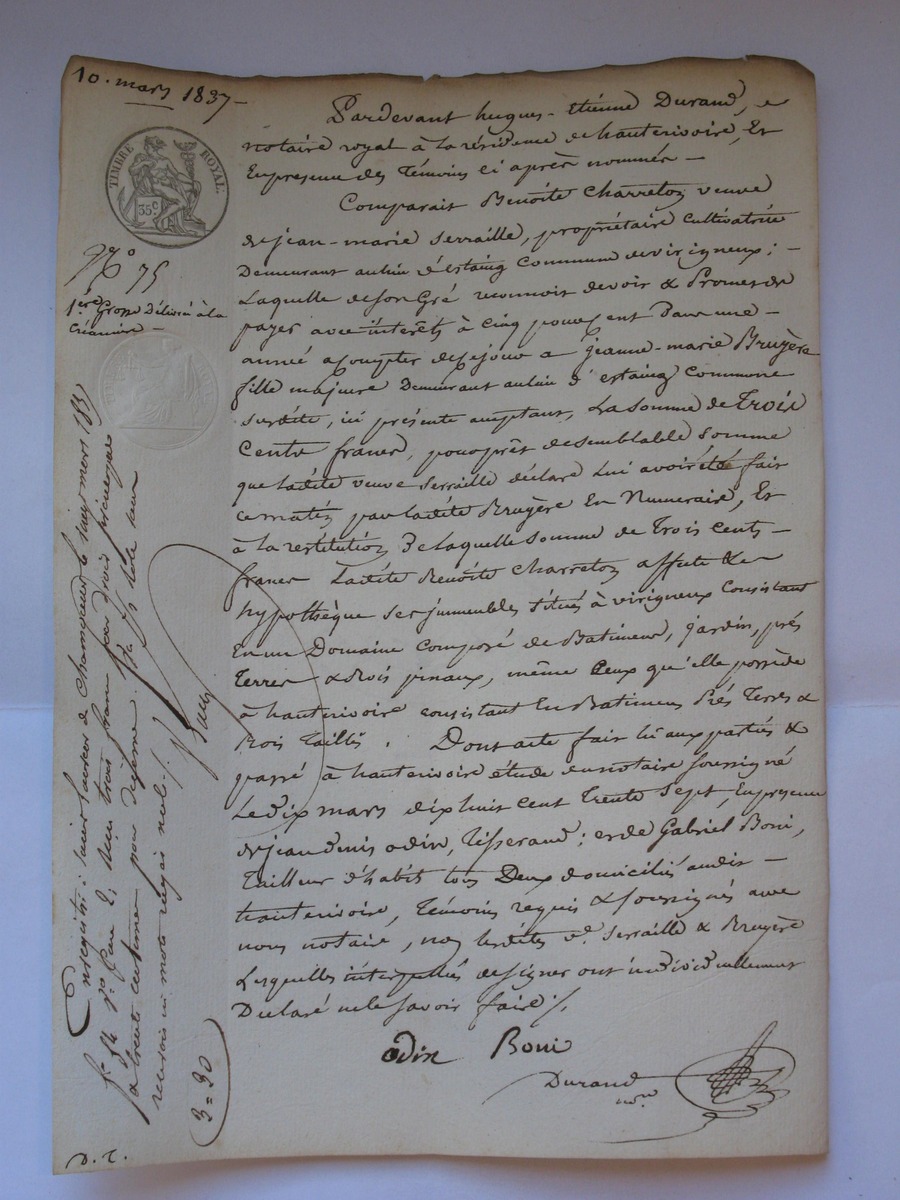 10. mars 1837 -
TIMBRE ROYAL.
35 C
N.o 75
1.ère Grosse Délivrée à la
Créancière -
Pardevant hugues-Etienne Durand,
notaire royal à la résidence de hauterivoire, Et
En presence des Témoins ci après nommés -
Comparait Benoîte Charretoz veuve
de jean-marie Serraille, propriétaire Cultivatrice
Demeurant au lieu d'Estaing Commune de virigneux; -
Laquelle de son Gré reconnoit devoir & Promet de
payer avec intérêts à Cinq pour cent Dans une -
année à Compter de ce jour a jeanne-marie Bruyère
fille majeure Demeurant au lieu d'estaing commune
susdite, ici présente acceptant, La Somme de Trois
Cents francs, pour prêt de semblable Somme
que Ladite veuve Serraille déclare Lui avoir été fait
ce matin par Ladite Bruyère En Numeraire, Et
à la restitution De Laquelle Somme de Trois Cents -
francs Ladite Benoîte Charretoz affecte &
hypothèque ses immeubles Situés à virigneux Consistant
En un Domaine Composé de Batimens, jardin, prés
Terres & Bois pinaux, même Ceux qu'elle possède
à hauterivoire consistant En Batimens Prés Terres &
Bois Taillis. Dont acte fait Lu aux parties &
passé à hauterivoire étude du notaire Soussigné
Le dix mars dix huit cent Trente Sept, En presence
de jean denis odin, Tisserand; et de Gabriel Boni,
Tailleur d'habits tous Deux domiciliés audit -
hauterivoire, Témoins requis & soussignés avec
nous notaire, non Lesdites v.e Serraille & Bruyère
Lesquelles interpellées de signer ont individuellement
Déclaré ne le Savoir faire ./.
odin Boni
Durand
n.re
Enregistré à Saint Laurent de Chamousset le seize mars 1837
f.o 54 r.o Case 2. reçu trois francs pour droit principal
& trente centimes pour décime.
3=30
D. T.